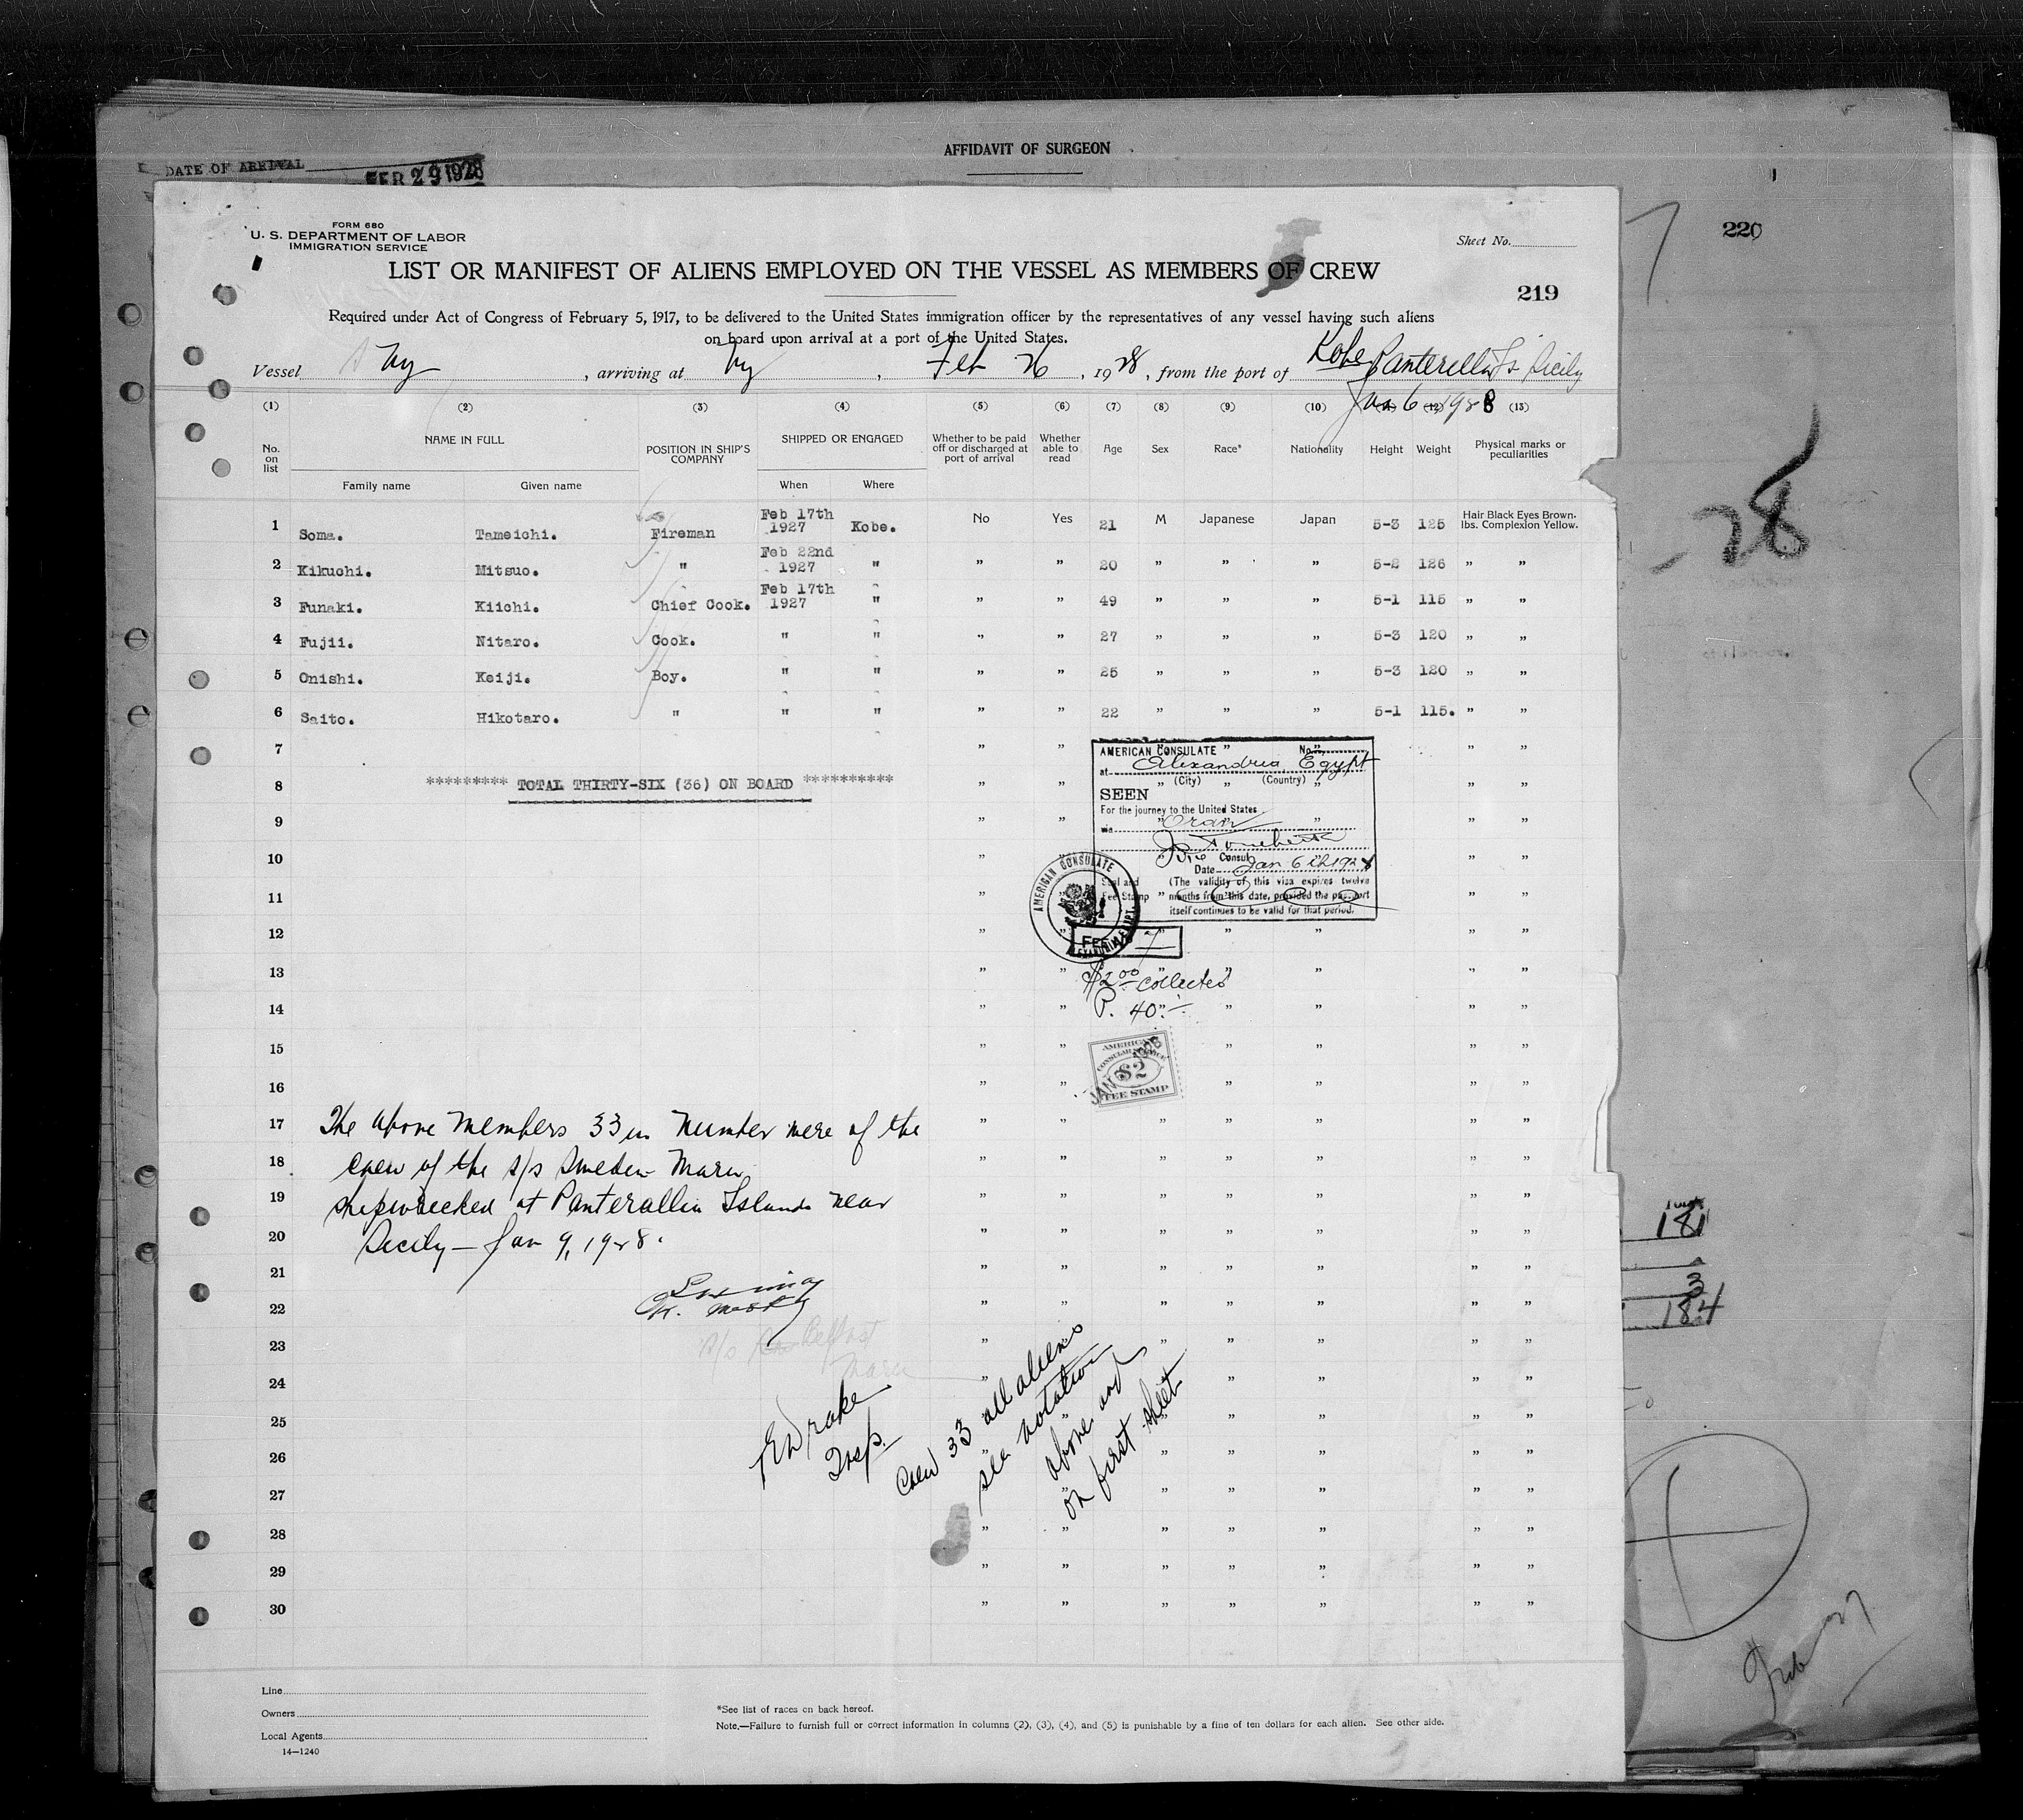 AFFIDAVIT OF SURGEON
DATE OF ARRIVAL FEB 29 1928
220
FORM 680
U. S. DEPARTMENT OF LABOR
IMMIGRATION SERVICE
Sheet No.
LIST OR MANIFEST OF ALIENS EMPLOYED ON THE VESSEL AS MEMBERS OF CREW
219
Required under Act of Congress of February 5, 1917, to be delivered to the United States immigration officer by the representatives of any vessel having such aliens
on board upon arrival at a port of the United States.
Vessel Ny, arriving at Ny, Feb 26, 1928, from the port of Kobe Panterella Is Sicily
Jan 6 1928
(1) (2) (3) (4) (5) (6) (7) (8) (9) (10) (11) (12) (13)
No. on list NAME IN FULL POSITION IN SHIP'S COMPANY SHIPPED OR ENGAGED Whether to be paid off or discharged at port of arrival Whether able to read Age Sex Race* Nationality Height Weight Physical marks or peculiarities
Family name Given name When Where
1 Soma. Tameichi. Fireman Feb 17th 1927 Kobe. No Yes 21 M Japanese Japan 5-3 125 lbs. Hair Black Eyes Brown. Complexion Yellow.
2 Kikuchi. Mitsuo. " Feb 22nd 1927 " " " 20 " " " 5-2 126 " "
3 Funaki. Kiichi. Chief Cook. Feb 17th 1927 " " " 49 " " " 5-1 115 " "
4 Fujii. Nitaro. Cook. " " " " 27 " " " 5-3 120 " "
5 Onishi. Keiji. Boy. " " " " 25 " " " 5-3 120 " "
6 Saito. Hikotaro. " " " " " 22 " " " 5-1 115. " "
7 " " " " " " "
8 ********* TOTAL THIRTY-SIX (36) ON BOARD ********** " " " " " "
AMERICAN CONSULATE No.
at Alexandria, Egypt
(City) (Country)
SEEN
For the journey to the United States
via Oran
Vice Consul
Date Jan 6th 1928
Seal and Fee Stamp (The validity of this visa expires twelve
months from this date, provided the passport
itself continues to be valid for that period.
AMERICAN CONSULATE ALEXANDRIA EGYPT
FEE No 7
$2.00 collected
P. 40.-
AMERICAN
CONSULAR SERVICE
$2
FEE STAMP
JAN 6 1928
9 " " " " " "
10 " " " "
11 " " " "
12 " " " " " "
13 " " " " " " "
14 " " " " " "
15 " " " " " "
16 " " " " " "
17 The above members 33 in number were of the " " " " " " "
18 crew of the s/s Sweden Maru " " " " " " "
19 shipwrecked at Panterallia Islands near " " " " " " "
20 Sicily - Jan 9, 1928. " " " " " " "
21 " " " " " " "
22 " " " " " " "
23 s/s Belfast Maru " " " " " " "
24 " " " " " "
25 " " " " " " "
26 " " " " " "
27 " " " " " " "
28 " " " " " " "
29 " " " " " " "
30 " " " " " " "
E Drake
Insp.
Crew 33 all aliens
see notation
above and
on first sheet
Line
Owners
Local Agents
14—1240
*See list of races on back hereof.
Note.—Failure to furnish full or correct information in columns (2), (3), (4), and (5) is punishable by a fine of ten dollars for each alien. See other side.
28
181
3
184